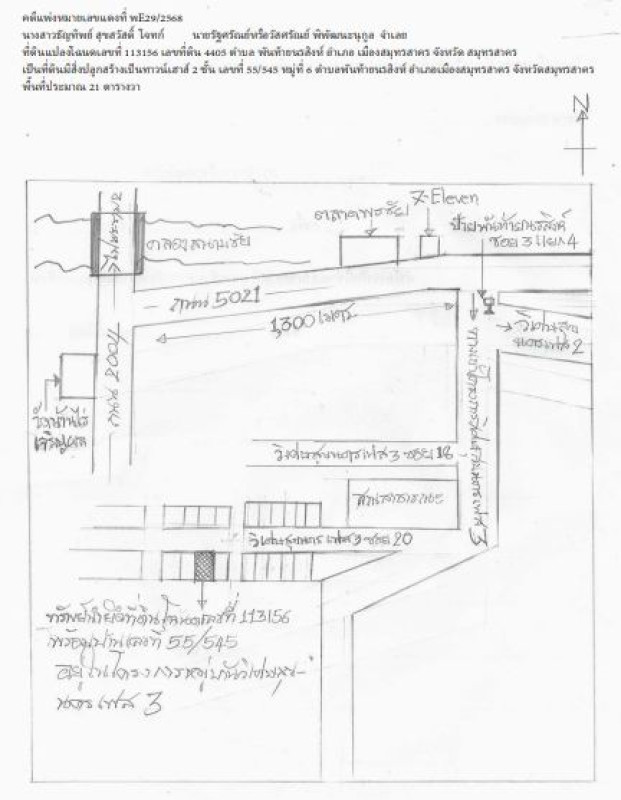 คดีแพ่งหมายเลขแดงที่ ผบE29/2568
นางสาวธัญทิพย์ สุขสวัสดิ์ โจทก์ นายรัฐศรัณย์หรือวัสศรัณย์ พิพัฒนะนุกูล จำเลย
ที่ดินแปลงโฉนดเลขที่ 113156 เลขที่ดิน 4405 ตำบล พันท้ายนรสิงห์ อำเภอ เมืองสมุทรสาคร จังหวัด สมุทรสาคร
เป็นที่ดินมีสิ่งปลูกสร้างเป็นทาวน์เฮาส์ 2 ชั้น เลขที่ 55/545 หมู่ที่ 6 ตำบลพันท้ายนรสิงห์ อำเภอเมืองสมุทรสาคร จังหวัดสมุทรสาคร
พื้นที่ประมาณ 21 ตารางวา
N
7-Eleven
ตลาดพรชัย
ป้ายพันท้ายนรสิงห์
ซอย 3 แยก 4
คลองสนามชัย
ถนน 5021
1,300 เมตร
วิเศษสุข
นครเฟส 2
วิเศษสุขนครเฟส 3 ซอย 18
สวนสาธารณะ
วิเศษสุขนคร เฟส 3 ซอย 20
ทรัพย์นำยึดที่ดินโฉนดเลขที่ 113156
พร้อมบ้านเลขที่ 55/545
อยู่ในโครงการหมู่บ้านวิเศษสุข-
นคร เฟส 3